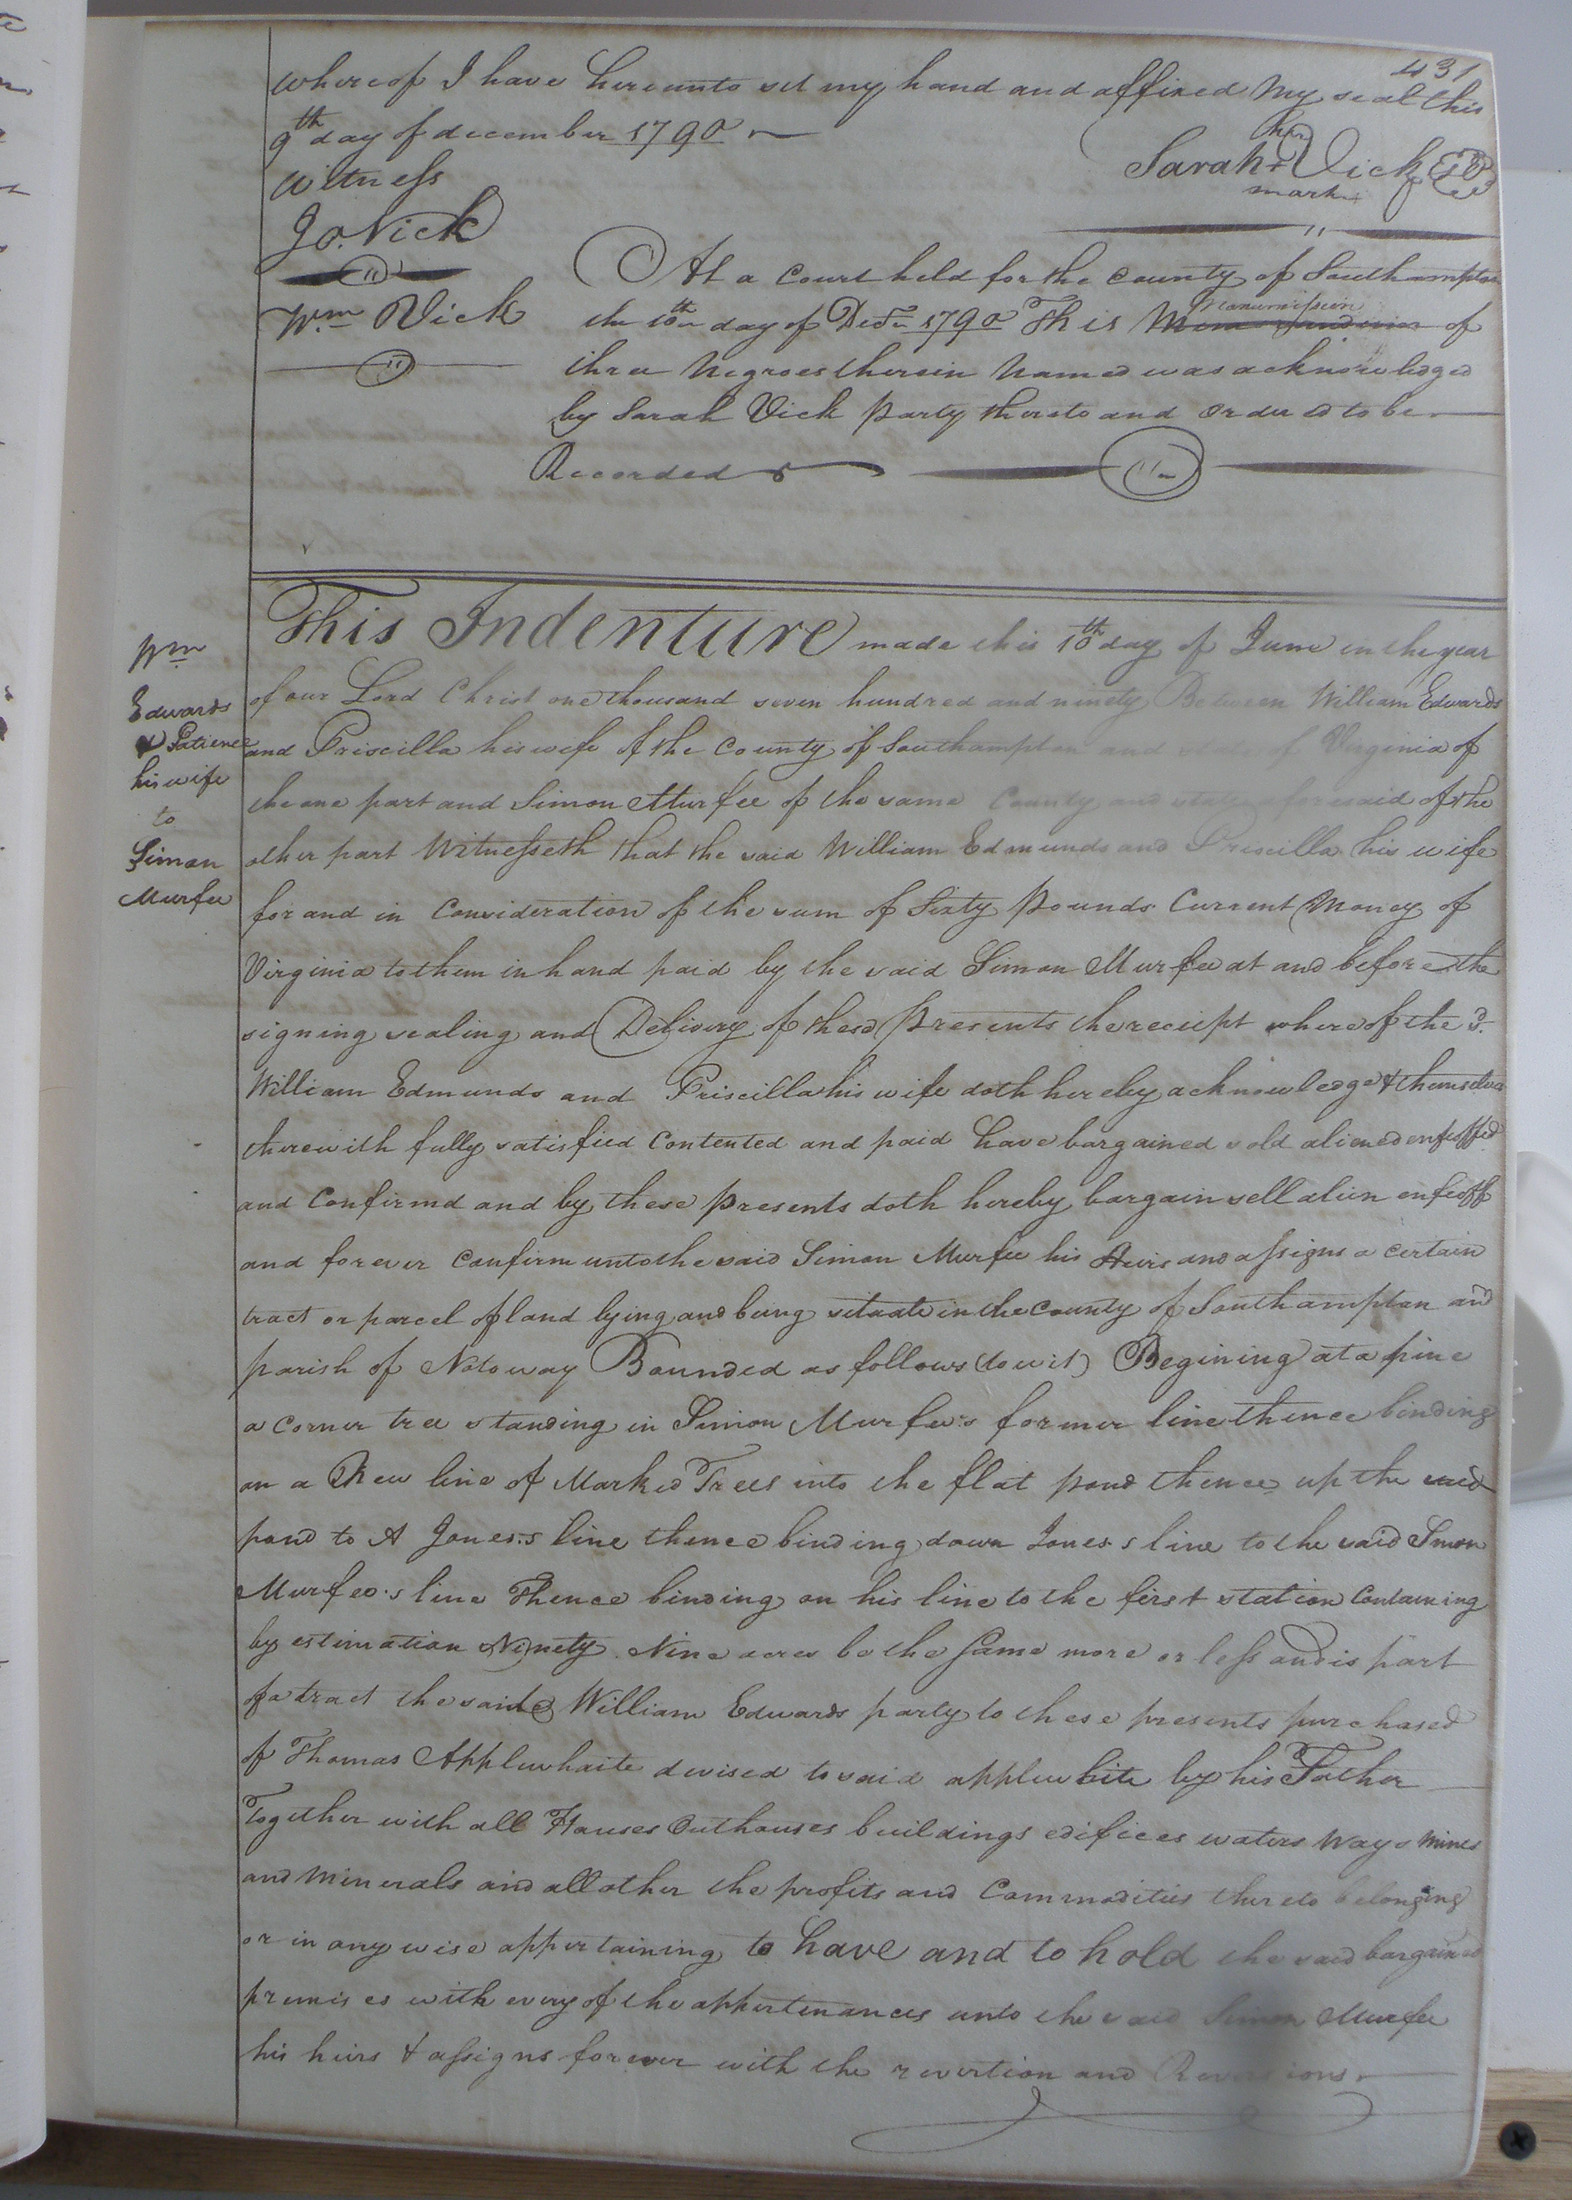 431
whereof I have hereunto set my hand and affixed my seal this
9th day of december 1790
Witness
her
Sarah + Vick
mark
Jo. Vick
At a Court held for the County of Southampton
Wm Vick
the 10th day of Decr 1790 This Manumission of
three Negroes therein Named was acknowledged
by Sarah Vick party thereto and ordered to be
Recorded
This Indenture made this 10th day of June in the year
of our Lord Christ one thousand seven hundred and ninety Between William Edwards
and Priscilla his wife of the County of Southampton and State of Virginia of
the one part and Simon Murfee of the same County and state aforesaid of the
other part Witnesseth that the said William Edmunds and Priscilla his wife
for and in Consideration of the sum of Sixty pounds Current Money of
Virginia to them in hand paid by the said Simon Murfee at and before the
signing sealing and Delivery of these presents the reciept whereof the sd.
William Edmunds and Priscilla his wife doth hereby acknowledge & themselves
therewith fully satisfied Contented and paid have bargained sold aliened enfeoffed
and Confirmd and by these presents doth hereby bargain sell alien enfeoff
and forever Confirm unto the said Simon Murfee his Heirs and assigns a certain
tract or parcel of land lying and being situate in the County of Southampton and
parish of Notoway Bounded as follows (to wit) Begining at a pine
a corner tree standing in Simon Murfee's former line thence binding
on a New line of Marked Trees into the flat pond thence up the said
pond to A Jones's line thence binding down Jones's line to the said Simon
Murfee's line Thence binding on his line to the first station Containing
by estimation Ninety Nine acres be the same more or less and is part
of a tract the said William Edwards party to these presents purchased
of Thomas Applewhaite devised to said applewhite by his Father
Together with all Houses Outhouses buildings edifices waters Ways Mines
and Minerals and all other the profits and Commodities thereto belonging
or in any wise appertaining to have and to hold the said bargained
premises with every of the appertenances unto the said Simon Murfee
his heirs & assigns forever with the revertion and Reversions
Wm
Edwards
& Patience
his wife
to
Simon
Murfee